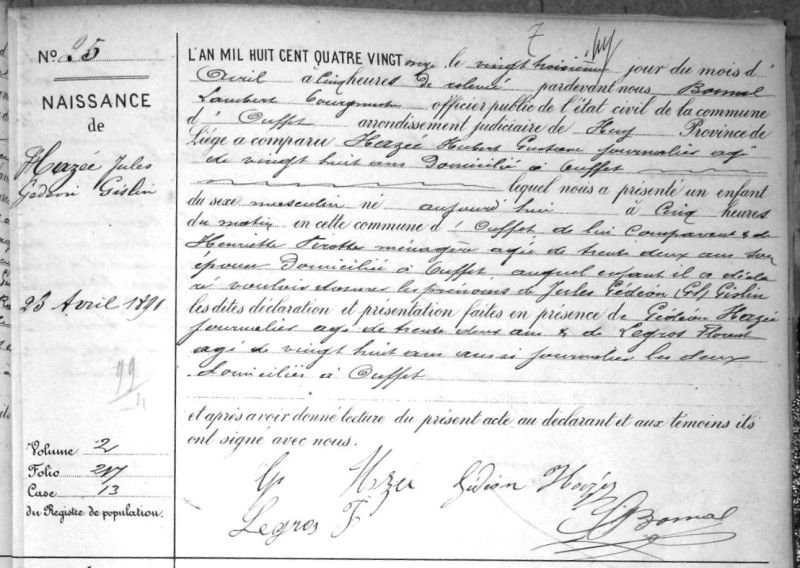 No. 25
NAISSANCE
de
Herzée Jules
Gédéon Gislin
23 Avril 1891
99
Volume 2
Folio 217
Case 13
du Registre de population.
7
L'AN MIL HUIT CENT QUATRE VINGT onze le vingt troisième jour du mois d'
Avril à cinq heures de relevée pardevant nous Bomal
Lambert officier public de l'état civil de la commune
d' Ouffet arrondissement judiciaire de Huy Province de
Liège a comparu Herzée Hubert Gustave journalier agé
de vingt huit ans Domicilié à Ouffet
lequel nous a présenté un enfant
du sexe masculin né aujourd'hui à Cinq heures
du matin en cette commune d' Ouffet de lui Comparant & de
Henriette Pirotte ménagère agée de trente deux ans son
épouse Domiciliée à Ouffet, auquel enfant il a décla
ré vouloir donner les prénoms de Jules Gédéon Gislin
les dites déclaration et présentation faites en présence de Gédéon Herzée
journalier agé de trente deux ans & de Legros Florent
agé de vingt huit ans aussi journalier les deux
domiciliés à Ouffet
et après avoir donné lecture du présent acte au déclarant et aux témoins ils
ont signé avec nous.
G Herzée Gédéon Herzée
Legros F
Bomal